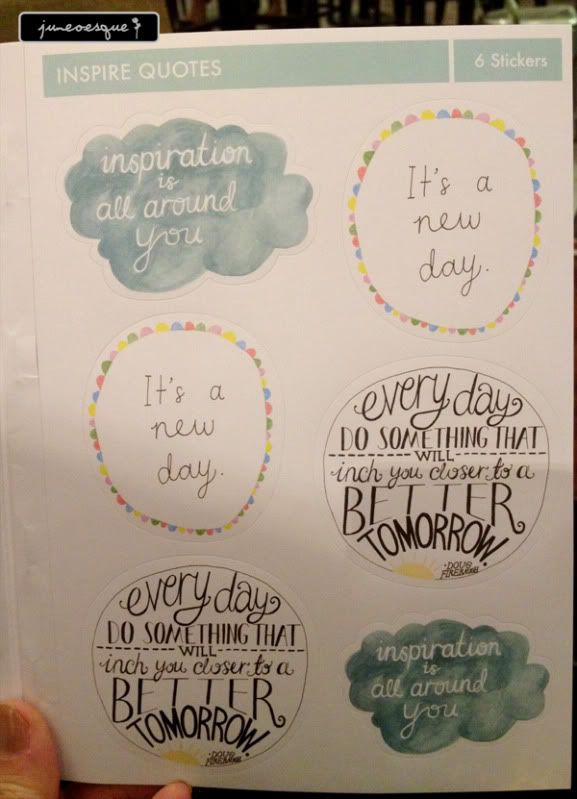 juneoesque
INSPIRE QUOTES
6 Stickers
inspiration
is
all around
you
It's a
new
day.
It's a
new
day.
every day
DO SOMETHING THAT
WILL
inch you closer to a
BETTER
TOMORROW.
DOUG
FIREBAUGH
every day
DO SOMETHING THAT
WILL
inch you closer to a
BETTER
TOMORROW.
DOUG
FIREBAUGH
inspiration
is
all around
you